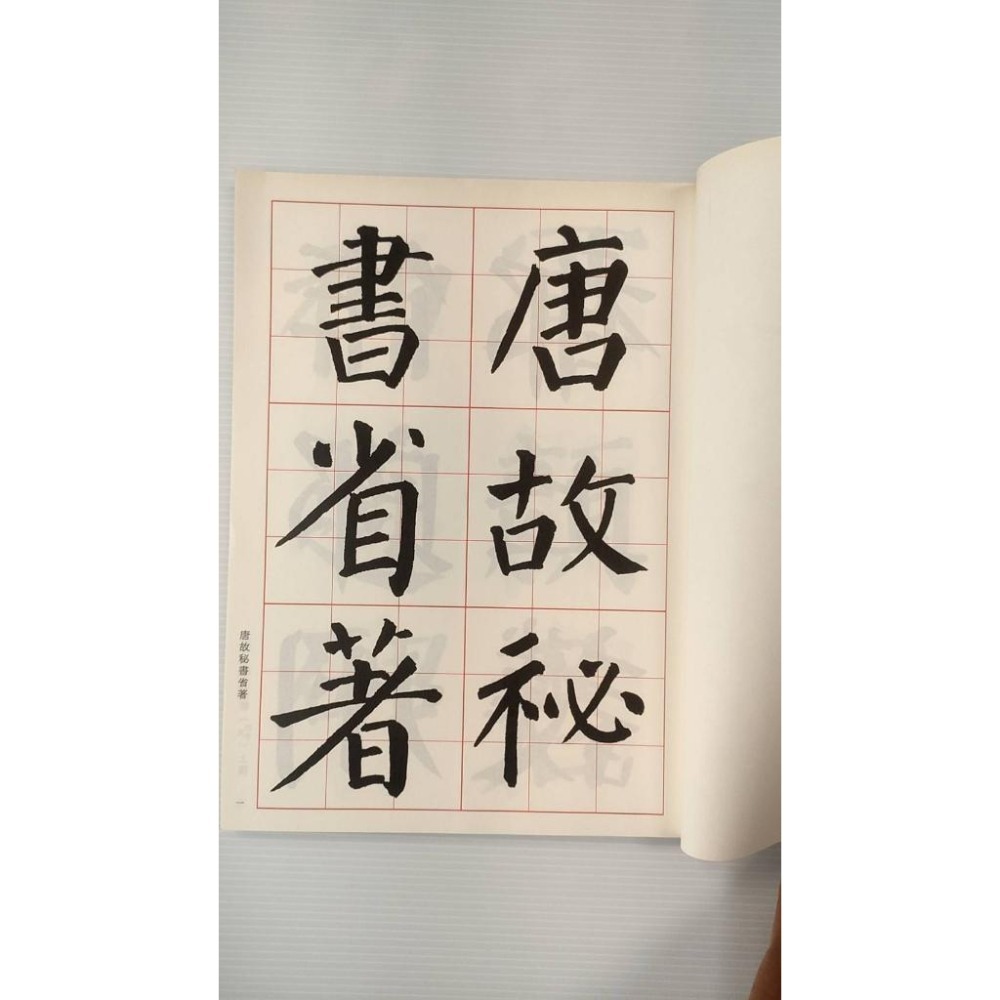 唐故祕
書省著
唐故秘書省著
一